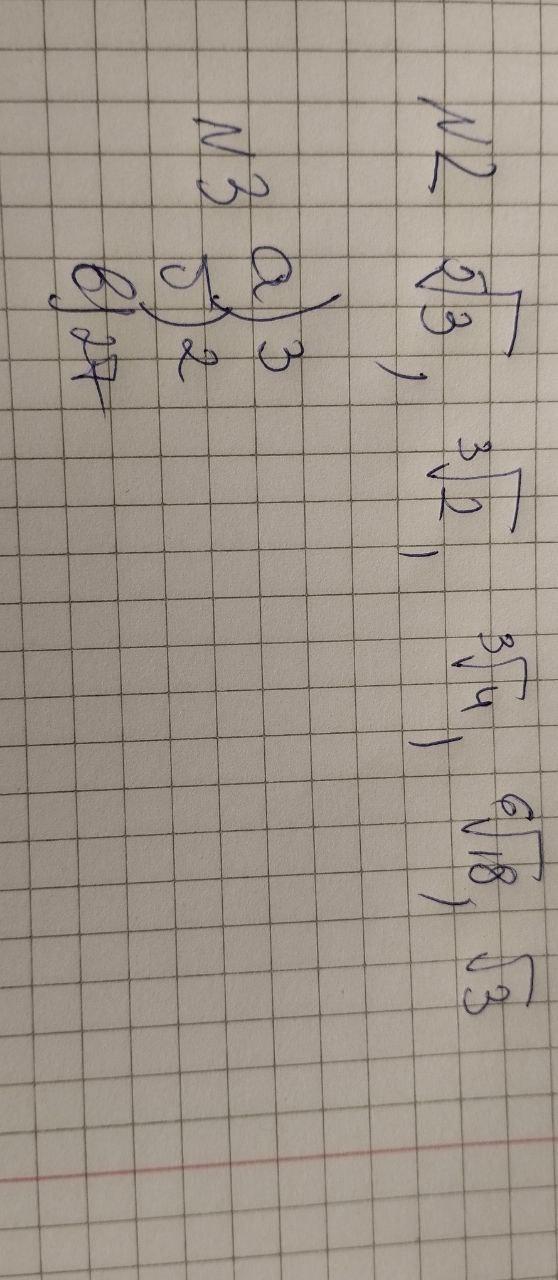 N2 ²√3, ³√2, ³√4, ⁶√18, √3
N3 а) 3
б) 2
в) 27